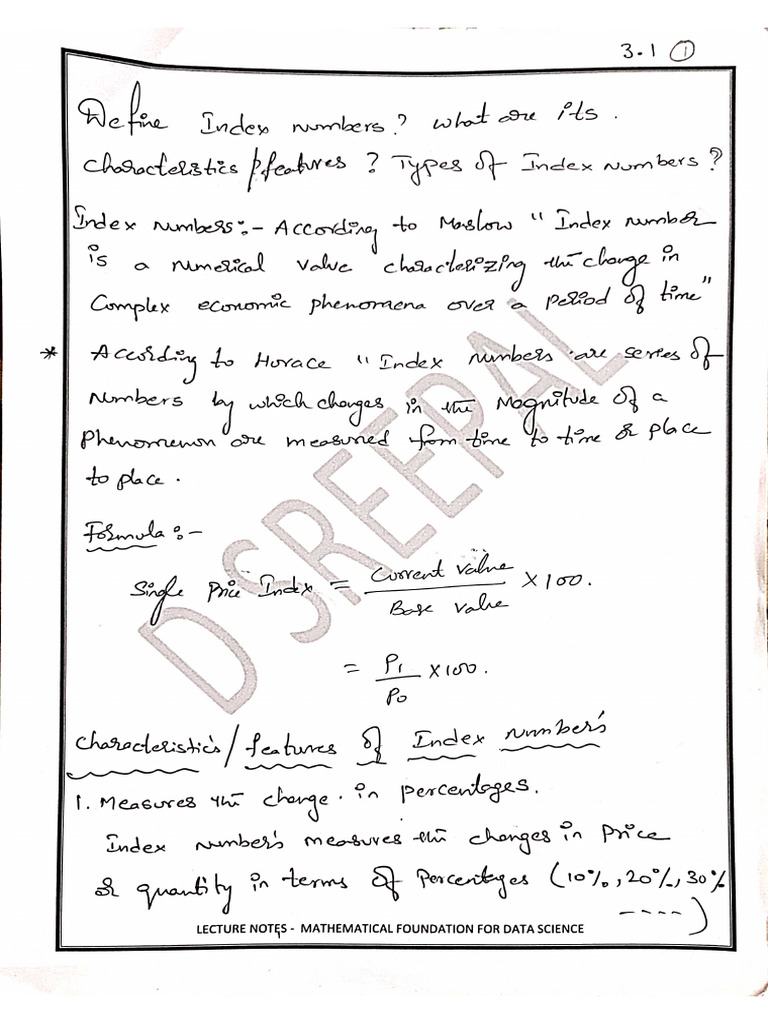 3.1 ①
Define Index numbers? What are its
characteristics/features? Types of Index numbers?
Index numbers:- According to Maslow "Index number
is a numerical value characterizing the change in
Complex economic phenomena over a period of time"
* According to Horace "Index numbers are series of
Numbers by which changes in the Magnitude of a
Phenomenon are measured from time to time or place
to place.
Formula:-
Single Price Index = Current value / Base value × 100.
= P1 / P0 × 100.
Characteristic's/features of Index number's
1. Measures the change in percentages.
Index number's measures the changes in Price
or quantity in terms of Percentages (10%, 20%, 30%
----)
D SREEPAL
LECTURE NOTES - MATHEMATICAL FOUNDATION FOR DATA SCIENCE